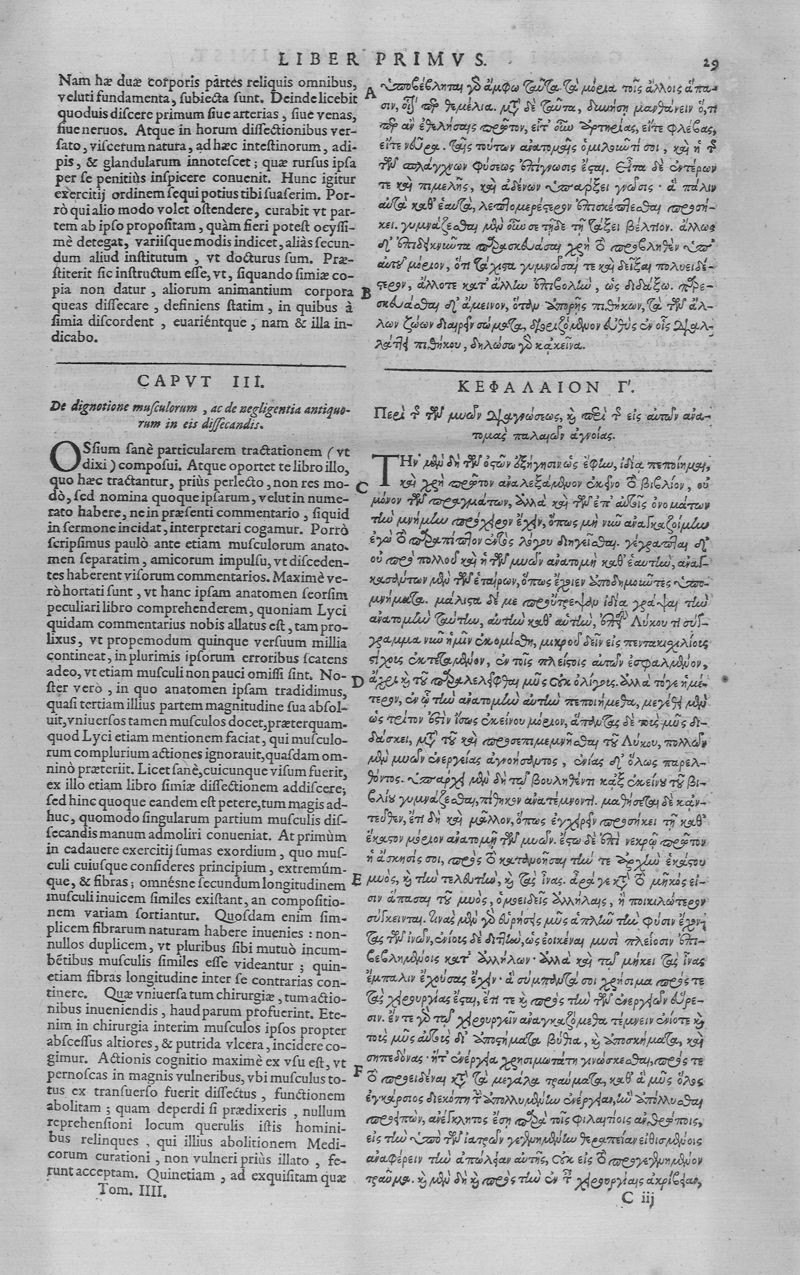 LIBER PRIMVS.
29
Nam hæ duæ corporis partes reliquis omnibus,
veluti fundamenta, subiecta sunt. Deinde licebit
quoduis discere primum siue arterias, siue venas,
siue neruos. Atque in horum dissectionibus ver-
sato, viscerum natura, ad hæc intestinorum, adi-
pis, & glandularum innotescet; quæ rursus ipsa
per se penitiùs inspicere conuenit. Hunc igitur
exercitij ordinem sequi potius tibi suaserim. Por-
rò qui alio modo volet ostendere, curabit vt par-
tem ab ipso propositam, quàm fieri potest ocyssi-
mè detegat, variisque modis indicet, aliàs secun-
dum aliud institutum, vt docturus sum. Præ-
stiterit sic instructum esse, vt, siquando simiæ co-
pia non datur, aliorum animantium corpora
queas dissecare, definiens statim, in quibus à
simia discordent, euariéntque, nam & illa in-
dicabo.
CAPVT III.
De dignotione musculorum, ac de negligentia antiquo-
rum in eis dissecandis.
OSsium sanè particularem tractationem (vt
dixi) composui. Atque oportet te libro illo,
quo hæc tractantur, priùs perlecto, non res mo-
dò, sed nomina quoque ipsarum, velut in nume-
rato habere, ne in præsenti commentario, siquid
in sermone incidat, interpretari cogamur. Porrò
scripsimus paulò ante etiam musculorum anato-
men separatim, amicorum impulsu, vt disceden-
tes haberent visorum commentarios. Maximè ve-
rò hortati sunt, vt hanc ipsam anatomen seorsim
peculiari libro comprehenderem, quoniam Lyci
quidam commentarius nobis allatus est, tam pro-
lixus, vt propemodum quinque versuum millia
contineat, in plurimis ipsorum erroribus scatens
adeo, vt etiam musculi non pauci omissi sint. No-
ster verò, in quo anatomen ipsam tradidimus,
quasi tertiam illius partem magnitudine sua absol-
uit, vniuersos tamen musculos docet, præterquam-
quod Lyci etiam mentionem faciat, qui musculo-
rum complurium actiones ignorauit, quasdam om-
ninò præteriit. Licet sanè, cuicunque visum fuerit,
ex illo etiam libro simiæ dissectionem addiscere;
sed hinc quoque eandem est petere, tum magis ad-
huc, quomodo singularum partium musculis dis-
secandis manum admoliri conueniat. At primùm
in cadauere exercitij sumas exordium, quo mus-
culi cuiusque consideres principium, extremúm-
que, & fibras; omnésne secundum longitudinem
musculi inuicem similes existant, an compositio-
nem variam sortiantur. Quosdam enim sim-
plicem fibrarum naturam habere inuenies: non-
nullos duplicem, vt pluribus sibi mutuò incum-
bétibus musculis similes esse videantur; quin-
etiam fibras longitudine inter se contrarias con-
tinere. Quæ vniuersa tum chirurgiæ, tum actio-
nibus inueniendis, haud parum profuerint. Ete-
nim in chirurgia interim musculos ipsos propter
abscessus altiores, & putrida vlcera, incidere co-
gimur. Actionis cognitio maximè ex vsu est, vt
pernoscas in magnis vulneribus, vbi musculus to-
tus ex transuerso fuerit dissectus, functionem
abolitam; quam deperdi si prædixeris, nullum
reprehensioni locum querulis istis homini-
bus relinques, qui illius abolitionem Medi-
corum curationi, non vulneri priùs illato, fe-
runt acceptam. Quinetiam, ad exquisitam quæ
Tom. IIII.
A
B
C
D
E
F
ὑποβέβληται γὸ ἄμφω ταῦτα τὰ μόρια τοῖς ἄλλοις ἅπα-
σιν, οἷον θεμέλια. μετὰ δὲ ταῦτα, μανθάνειν ὅ,τι
ἂν ἐθελήσῃς πρῶτον, εἴτ' οὖν ἀρτηρίας, εἴτε φλέβας,
εἴτε νεῦρα. ταῖς τούτων ἀνατομαῖς ὁμιλοῦντί σοι, καὶ ἡ
τῶν σπλάγχνων φύσεως ἐπίγνωσις ἔσται. εἶτα δὲ ἐντέρων
τε καὶ πιμελῆς, καὶ ἀδένων ὑπάρξει γνῶσις· ἃ πάλιν
αὐτὰ καθ' ἑαυτά, λεπτομερέστερον ἐπισκέπτεσθαι προσή-
κει. γυμνάζεσθαι μὲν οὖν σε τῇδε τῇ τάξει βέλτιον. ἄλλως
δ' ἐπιδεικνύντα παρασκευάσαι χρὴ τὸ προβληθὲν ὑπ'
αὐτοῦ μόριον, ὅτι τάχιστα γυμνῶσαί τε καὶ δεῖξαι πολυειδέ-
στερον, ἄλλοτε κατ' ἄλλην ἐπιβολὴν, ὡς διδάξω. παρε-
σκευάσθαι δ' ἄμεινον, ὅταν ἀπορῇς πιθήκων, τὰ τῶν ἄλ-
λων ζώων διαιρεῖν σώματα, διοριζόμενον εὐθὺς ἐν οἷς διαλ-
λάττει πιθήκου, δηλώσω γὸ κἀκεῖνα.
ΚΕΦΑΛΑΙΟΝ Γ'.
Περὶ τῆς τῶν μυῶν διαγνώσεως, καὶ περὶ τῆς εἰς αὐτῶν ἀνα-
τομὰς παλαιῶν ἀγνοίας.
ΤΗν μὲν δὴ τῶν ὀστῶν ἐξήγησιν ὡς ἔφην, ἰδίᾳ πεποίημαι,
καὶ χρὴ πρῶτον ἀναλεξάμενον ἐκεῖνο τὸ βιβλίον, οὐ
μόνον τῶν πραγμάτων, ἀλλὰ καὶ τῶν ἐπ' αὐτοῖς ὀνομάτων
τὴν μνήμην πρόχειρον ἔχειν, ὅπως μὴ νῦν ἀναγκαζοίμην
ἐγὼ τὸ παραπῖπτον ἐντὸς λόγου διηγεῖσθαι. γέγραπται δ'
οὐ πρὸ πολλοῦ καὶ ἡ τῶν μυῶν ἀνατομὴ καθ' ἑαυτὴν, ἀναγ-
κασάντων μὲν τῶν ἑταίρων, ὅπως ἔχοιεν ἀποδημοῦντες ὑπο-
μνήματα. μάλιστα δέ με προύτρεψαν ἰδίᾳ γράψαι τὴν
ἀνατομὴν ταύτην, αὐτὴν καθ' αὑτὴν, ἐπεὶ Λύκου τι σύγ-
γραμμα νῦν ἡμῖν ἐκομίσθη, μικροῦ δεῖν εἰς πεντακισχιλίους
στίχους ἐκτεταμένον, ἐν τοῖς πλείστοις αὐτῶν ἐσφαλμένον,
ἄχρι καὶ τοῦ παραλελεῖφθαι μῦς οὐκ ὀλίγους. ἀλλὰ τό γε ἡμέ-
τερον, ἐν ᾧ τὴν ἀνατομὴν αὐτὴν πεποιήμεθα, μεγέθει μὲν
ὡς τρίτον ἐστὶν ἴσως ἐκείνου μόριον, ἅπαντας δὲ τοὺς μῦς δι-
δάσκει, μετὰ τοῦ καὶ προσεπιμεμνῆσθαι τοῦ Λύκου, πολλῶν
μὲν μυῶν ἐνεργείας ἀγνοήσαντος, ἐνίας δ' ὅλως παρελ-
θόντος. ὑπάρχει μὲν δὴ τῷ βουληθέντι κἀξ ἐκείνου τοῦ βι-
βλίου γυμνάζεσθαι, πίθηκον ἀνατέμνοντι. μαθήσεται δὲ κἀν-
τεῦθεν, ἔτι δὴ καὶ μᾶλλον, ὅπως ἐγχειρεῖν προσήκει τῇ καθ'
ἕκαστον μόριον ἀνατομῇ τῶν μυῶν. ἔστω δὲ ἐπὶ νεκρῷ πρῶτον
ἡ ἄσκησίς σοι, πρὸς τὸ κατανοῆσαι τήν τε ἀρχὴν ἑκάστου
μυὸς, καὶ τὴν τελευτὴν, καὶ τὰς ἶνας. ἆρά γε κατὰ τὸ μῆκός εἰ-
σιν ἅπασαι τοῦ μυὸς, ὁμοειδεῖς ἀλλήλαις, ἢ ποικιλώτερον
σύγκεινται. τινὰς μὲν γὸ εὑρήσεις μῦς ἁπλῆν τὴν φύσιν ἔχον-
τας τῶν ἰνῶν, ἐνίους δὲ διττὴν, ὡς ἐοικέναι μυσὶ πλείοσιν ἐπι-
βεβλημένοις κατ' ἀλλήλων· ἀλλὰ καὶ τῷ μήκει τὰς ἶνας
ἔμπαλιν ἐχούσας ἔχειν· ἃ σύμπαντά σοι χρήσιμα πρός τε
τὰς χειρουργίας ἔσται, ἔτι τε καὶ πρὸς τὴν τῶν ἐνεργειῶν εὕρε-
σιν. ἔν τε γὸ τῷ χειρουργεῖν ἀναγκαζόμεθα τέμνειν ἐνίοτε καὶ
τοὺς μῦς αὐτοὺς δι' ἀποστήματα βύθια, καὶ ἀποσκήμματα, καὶ
σηπεδόνας· ἥτ' ἐνέργεια χρησιμωτάτη γινώσκεσθαι, πρός τε
τὸ προειδέναι κατὰ τὰ μεγάλα τραύματα, καθ' ἃ μῦς ὅλος
ἐγκάρσιος διεκόπη τὴν ἀπολλυμένην ἐνέργειαν, ἣν ἀπολλυσθαι
προειπὼν, ἀνέγκλητος ἔσῃ παρὰ τοῖς φιλαιτίοις ἀνθρώποις,
εἰς τὴν ὑπὸ τῶν ἰατρῶν γενομένην θεραπείαν εἰθισμένοις
ἀναφέρειν τὴν ἀπώλειαν αὐτῆς, οὐκ εἰς τὸ προγεγενημένον
τραῦμα. καὶ μὲν δὴ καὶ πρὸς τὴν ἐν τ χειρουργίαις ἀκρίβειαν,
C iij